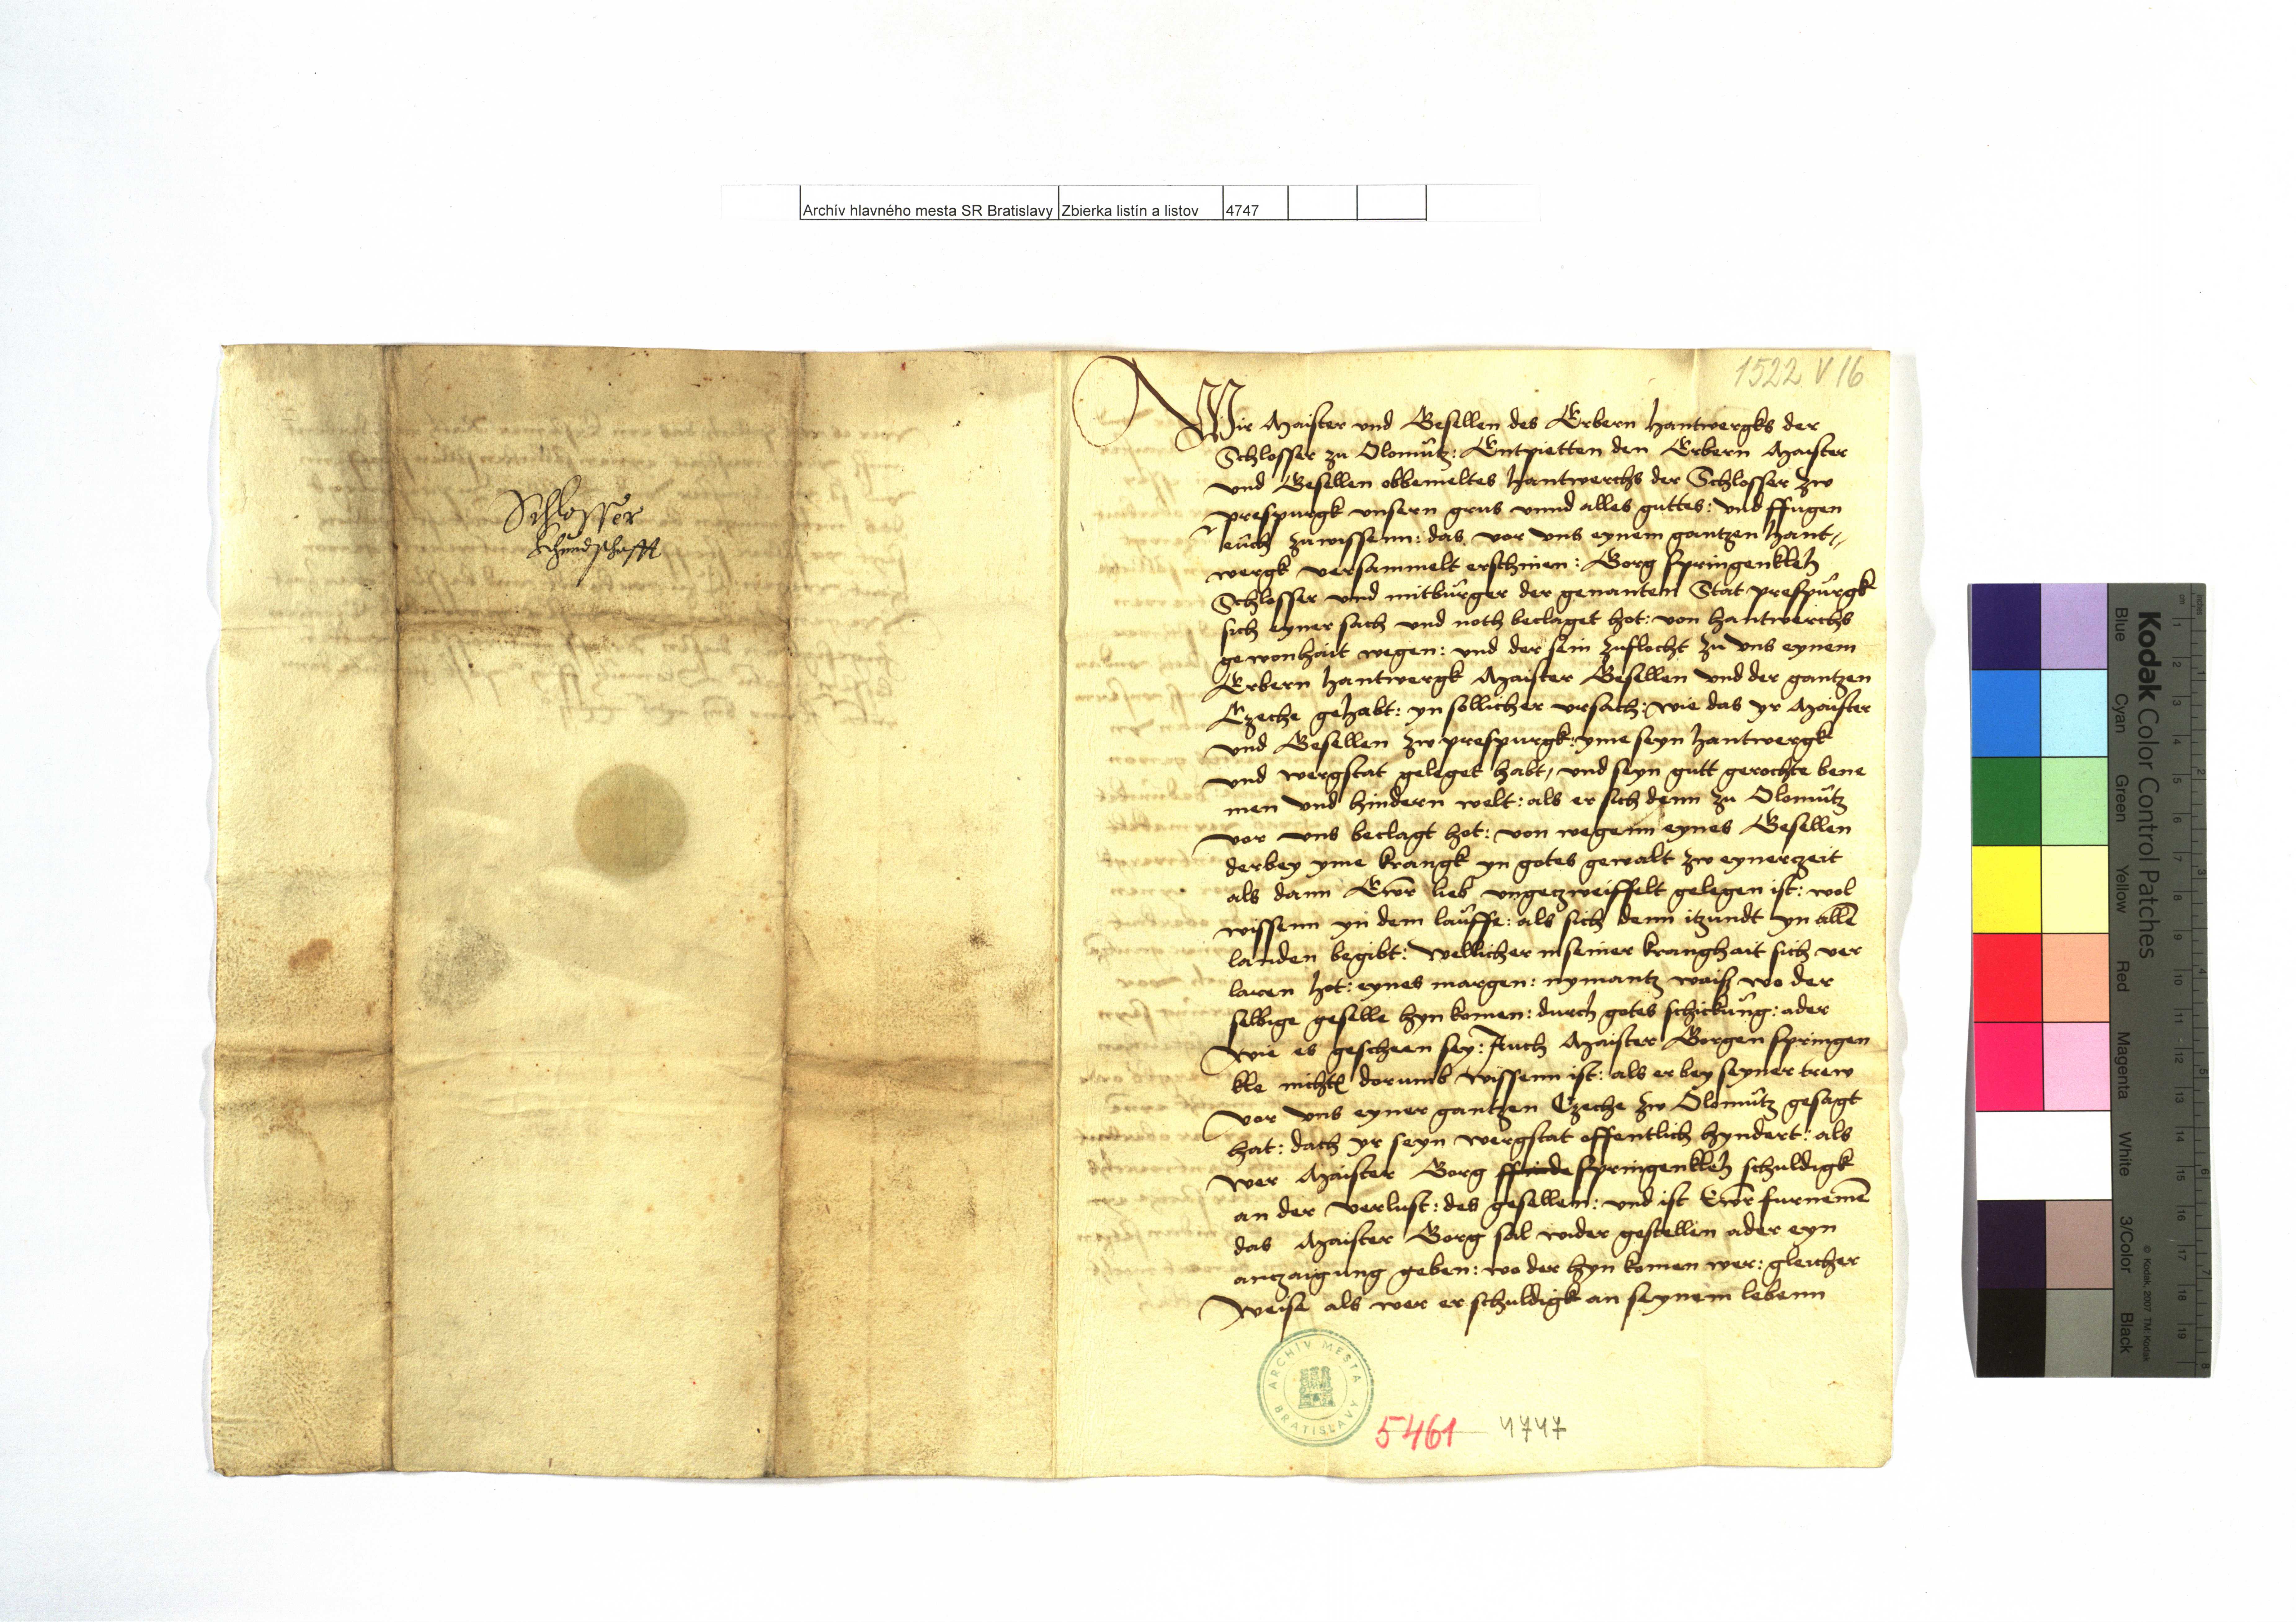 Archív hlavného mesta SR Bratislavy Zbierka listín a listov 4747
1522 V 16
Schlosser
Khundschafft
Wir Maister und Gesellen des Erbern hantwergks der
Schlosser zu Olomůtz: Entpietten den Erbern Maister
und Gesellen obbemeltes hantwerchs der Schlosser zw
prespurgk unsern grus unnd alles guttes: und ffugen
eůch zuwissenn: das vor uns eynem gantzen hant„
wergk versammelt erschinen: Gorg springenkleh
Schlosser und mitbůrger der genanten Stat prespůrgk
sich eyner sach und noth beclaget hot: von hantwerchs
gewonhait wegen: und der sein zuflocht zu uns eynem
Erbern hantwergk Maister Gesellen und der gantzen
Czeche gehabt: yn sollicher ursach: wie das yr Maister
und Gesellen zw prespurgk: yme seyn hantwergk
und wergstat geleget habt, und seyn gutt gerochte bene
men und hindern welt: als er sich denn zu Olomůtz
vor uns beclagt hot: von wegenn eynes Gesellen
der bey yme krangk yn gotes gewalt zw eyner zeit
als dann Ewr lieb ungeczweiffelt gelegen ist: wol
wissenn yn dem laůffe: als sich denn itzundt yn allē
landen begibt: wellicher in seiner kranghait sich ver
laren hot: eynes margen: nymantz waiß wo der
selbige geselle hyn komen: durch gotes schickůng: ader
wie es gescheen sey: Auch Maister Gorgen springen
kle nichts dorumb wissenn ist: als er bey seyner trew
vor uns eyner gantzen Czeche zw Olomůtz gesagt
hat: dach yr seyn wergstat offentlich hyndert: als
wer Maister Gorg springenkleh schuldigk
an der verlust: des gesellen: und ist Ewr furnemē
das Maister Gorg sal wider gestellen ader eyn
anczaigung geben: wo der hyn komen wer: gleicher
weise als wer er schuldigk an seynem lebenn
ARCHÍV MESTA BRATISLAVY
5461 4747
Kodak Color Control Patches
Blue Cyan Green Yellow Red Magenta White 3/Color Black
© Kodak, 2007 TM: Kodak